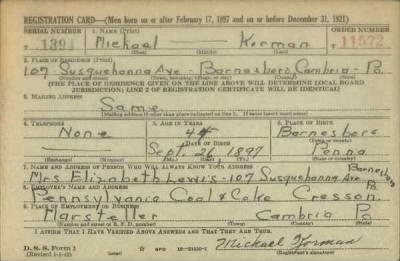 REGISTRATION CARD—(Men born on or after February 17, 1897 and on or before December 31, 1921)
SERIAL NUMBER 1. NAME (Print) ORDER NUMBER
T 1394 Michael Korman 11572
(First) (Middle) (Last)
2. PLACE OF RESIDENCE (Print)
107 Susquehanna Ave. Barnesboro, Cambria - Pa.
(Number and street) (Town, township, village, or city) (County) (State)
[THE PLACE OF RESIDENCE GIVEN ON THE LINE ABOVE WILL DETERMINE LOCAL BOARD
JURISDICTION; LINE 2 OF REGISTRATION CERTIFICATE WILL BE IDENTICAL]
3. MAILING ADDRESS
Same
[Mailing address if other than place indicated on line 2. If same insert word same]
4. TELEPHONE 5. AGE IN YEARS 6. PLACE OF BIRTH
None 44 Barnesboro
DATE OF BIRTH (Town or county)
Sept. 26, 1897 Penna
(Exchange) (Number) (Mo.) (Day) (Yr.) (State or country)
7. NAME AND ADDRESS OF PERSON WHO WILL ALWAYS KNOW YOUR ADDRESS Barnesboro
Mrs Elizabeth Lewis - 107 Susquehanna Ave Pa.
8. EMPLOYER'S NAME AND ADDRESS
Pennsylvania Coal & Coke Cresson.
9. PLACE OF EMPLOYMENT OR BUSINESS
Marsteller Cambria Pa
(Number and street or R. F. D. number) (Town) (County) (State)
I AFFIRM THAT I HAVE VERIFIED ABOVE ANSWERS AND THAT THEY ARE TRUE.
D. S. S. Form 1
(Revised 1-1-42) GPO 16—21630-1 Michael Korman
(Registrant's signature)